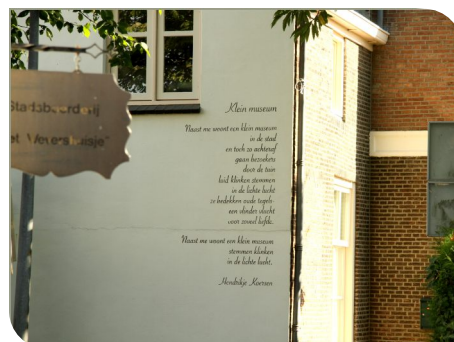 Stadsboerderij
et Wevershuisje"
Klein museum
Naast me woont een klein museum
in de stad
en toch zo achteraf
gaan bezoekers
door de tuin
luid klinken stemmen
in de lichte lucht
ze bedekken oude tegels
een vlinder vlucht
voor zoveel liefde.
Naast me woont een klein museum
stemmen klinken
in de lichte lucht.
Hendrikje